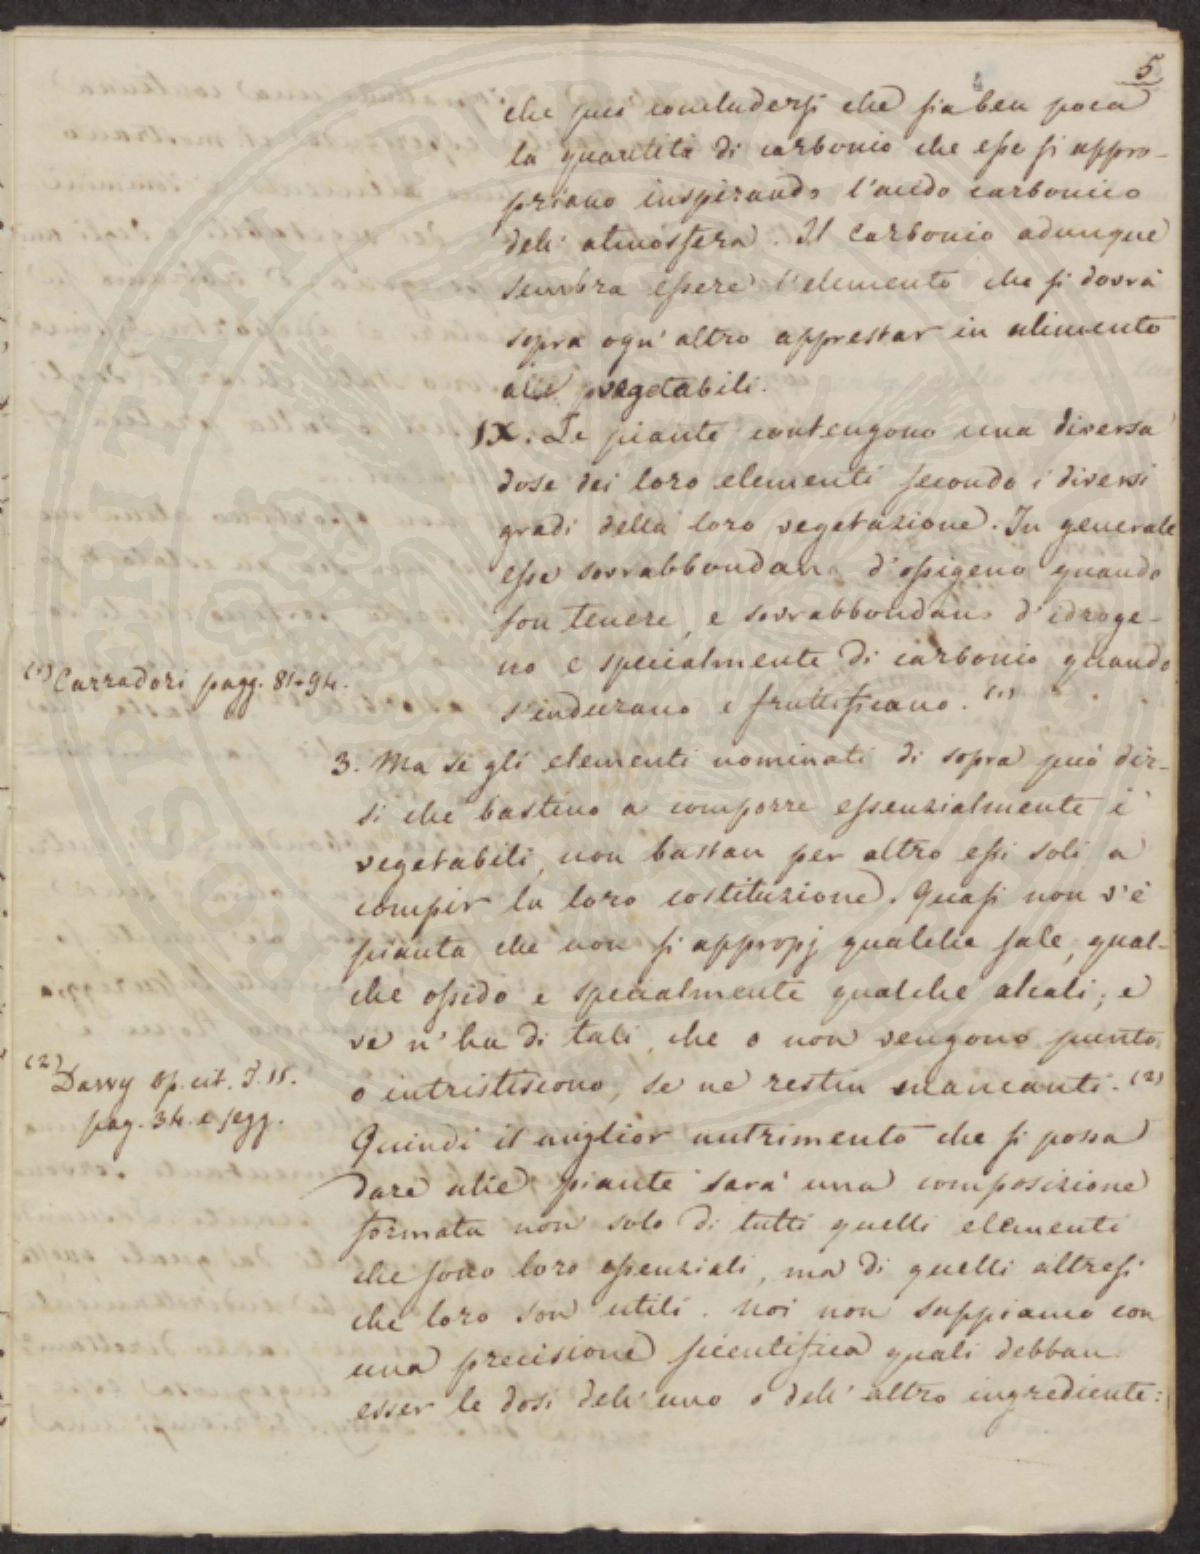 5
che può concludersi che sia ben poca
la quantità di carbonio che esse si appro-
priano inspirando l'acido carbonico
dell'atmosfera. Il Carbonio adunque
sembra essere l'elemento che si dovrà
sopra ogn'altro apprestar in alimento
alle vegetabili.
IX. Le piante contengono una diversa
dose dei loro elementi secondo i diversi
gradi della loro vegetazione. In generale
esse sovrabbondano d'ossigeno quando
son tenere, e sovrabbondano d'idroge-
no e specialmente di carbonio quando
s'indurano e fruttificano. (1)
(1) Carradori pagg. 81-94.
3. Ma se gli elementi nominati di sopra può dir-
si che bastino a comporre essenzialmente i
vegetabili, non bastan per altro essi soli a
compir la loro costituzione. Quasi non v'è
pianta che non si appropj qualche sale, qual-
che ossido e specialmente qualche alcali; e
ve n'ha di tali, che o non vengono punto,
o intristiscono, se ne restin mancanti. (2)
(2) Davvy op. cit. T. II.
pag. 34. e segg.
Quindi il miglior nutrimento che si possa
dare alle piante sarà una composizione
formata non solo di tutti quelli elementi
che sono loro essenziali, ma di quelli altresì
che loro son utili. Noi non sappiamo con
una precisione scientifica quali debban
esser le dosi dell'uno o dell'altro ingrediente: